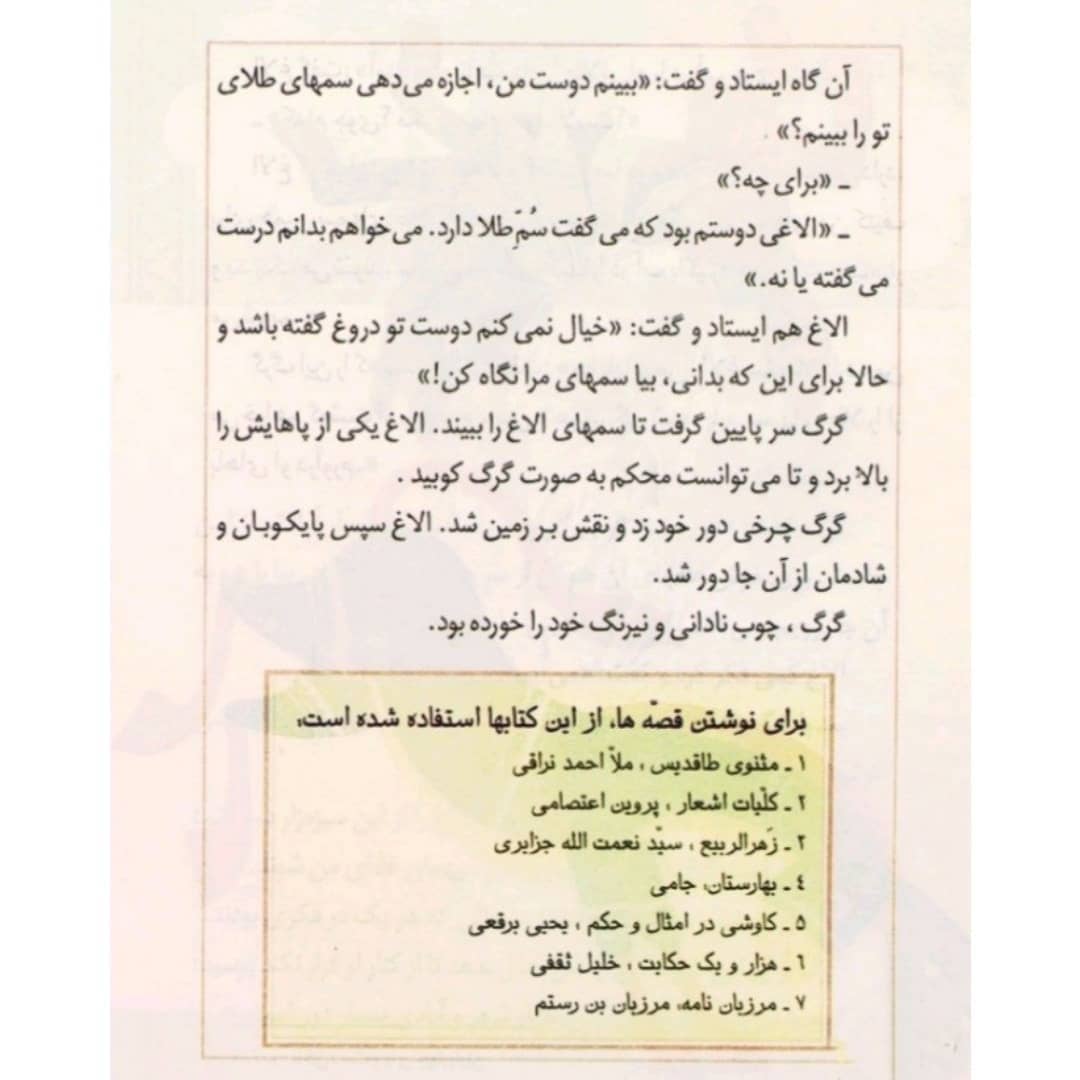 آن گاه ایستاد و گفت: «ببینم دوست من، اجازه می‌دهی سمهای طلای
تو را ببینم؟»
ـ «برای چه؟»
ـ «الاغی دوستم بود که می گفت سُمِّ طلا دارد. می خواهم بدانم درست
می گفته یا نه.»
الاغ هم ایستاد و گفت: «خیال نمی کنم دوست تو دروغ گفته باشد و
حالا برای این که بدانی، بیا سمهای مرا نگاه کن!»
گرگ سر پایین گرفت تا سمهای الاغ را ببیند. الاغ یکی از پاهایش را
بالا برد و تا می‌توانست محکم به صورت گرگ کوبید .
گرگ چرخی دور خود زد و نقش بر زمین شد. الاغ سپس پایکوبان و
شادمان از آن جا دور شد.
گرگ ، چوب نادانی و نیرنگ خود را خورده بود.
برای نوشتن قصّه ها، از این کتابها استفاده شده است:
۱ ـ مثنوی طاقدیس ، ملاّ احمد نراقی
۲ ـ کلّیات اشعار ، پروین اعتصامی
۳ ـ زَهرالربیع ، سیّد نعمت الله جزایری
٤ ـ بهارستان، جامی
۵ ـ کاوشی در امثال و حکم ، یحیی برقعی
٦ ـ هزار و یک حکایت ، خلیل ثقفی
۷ ـ مرزبان نامه، مرزبان بن رستم